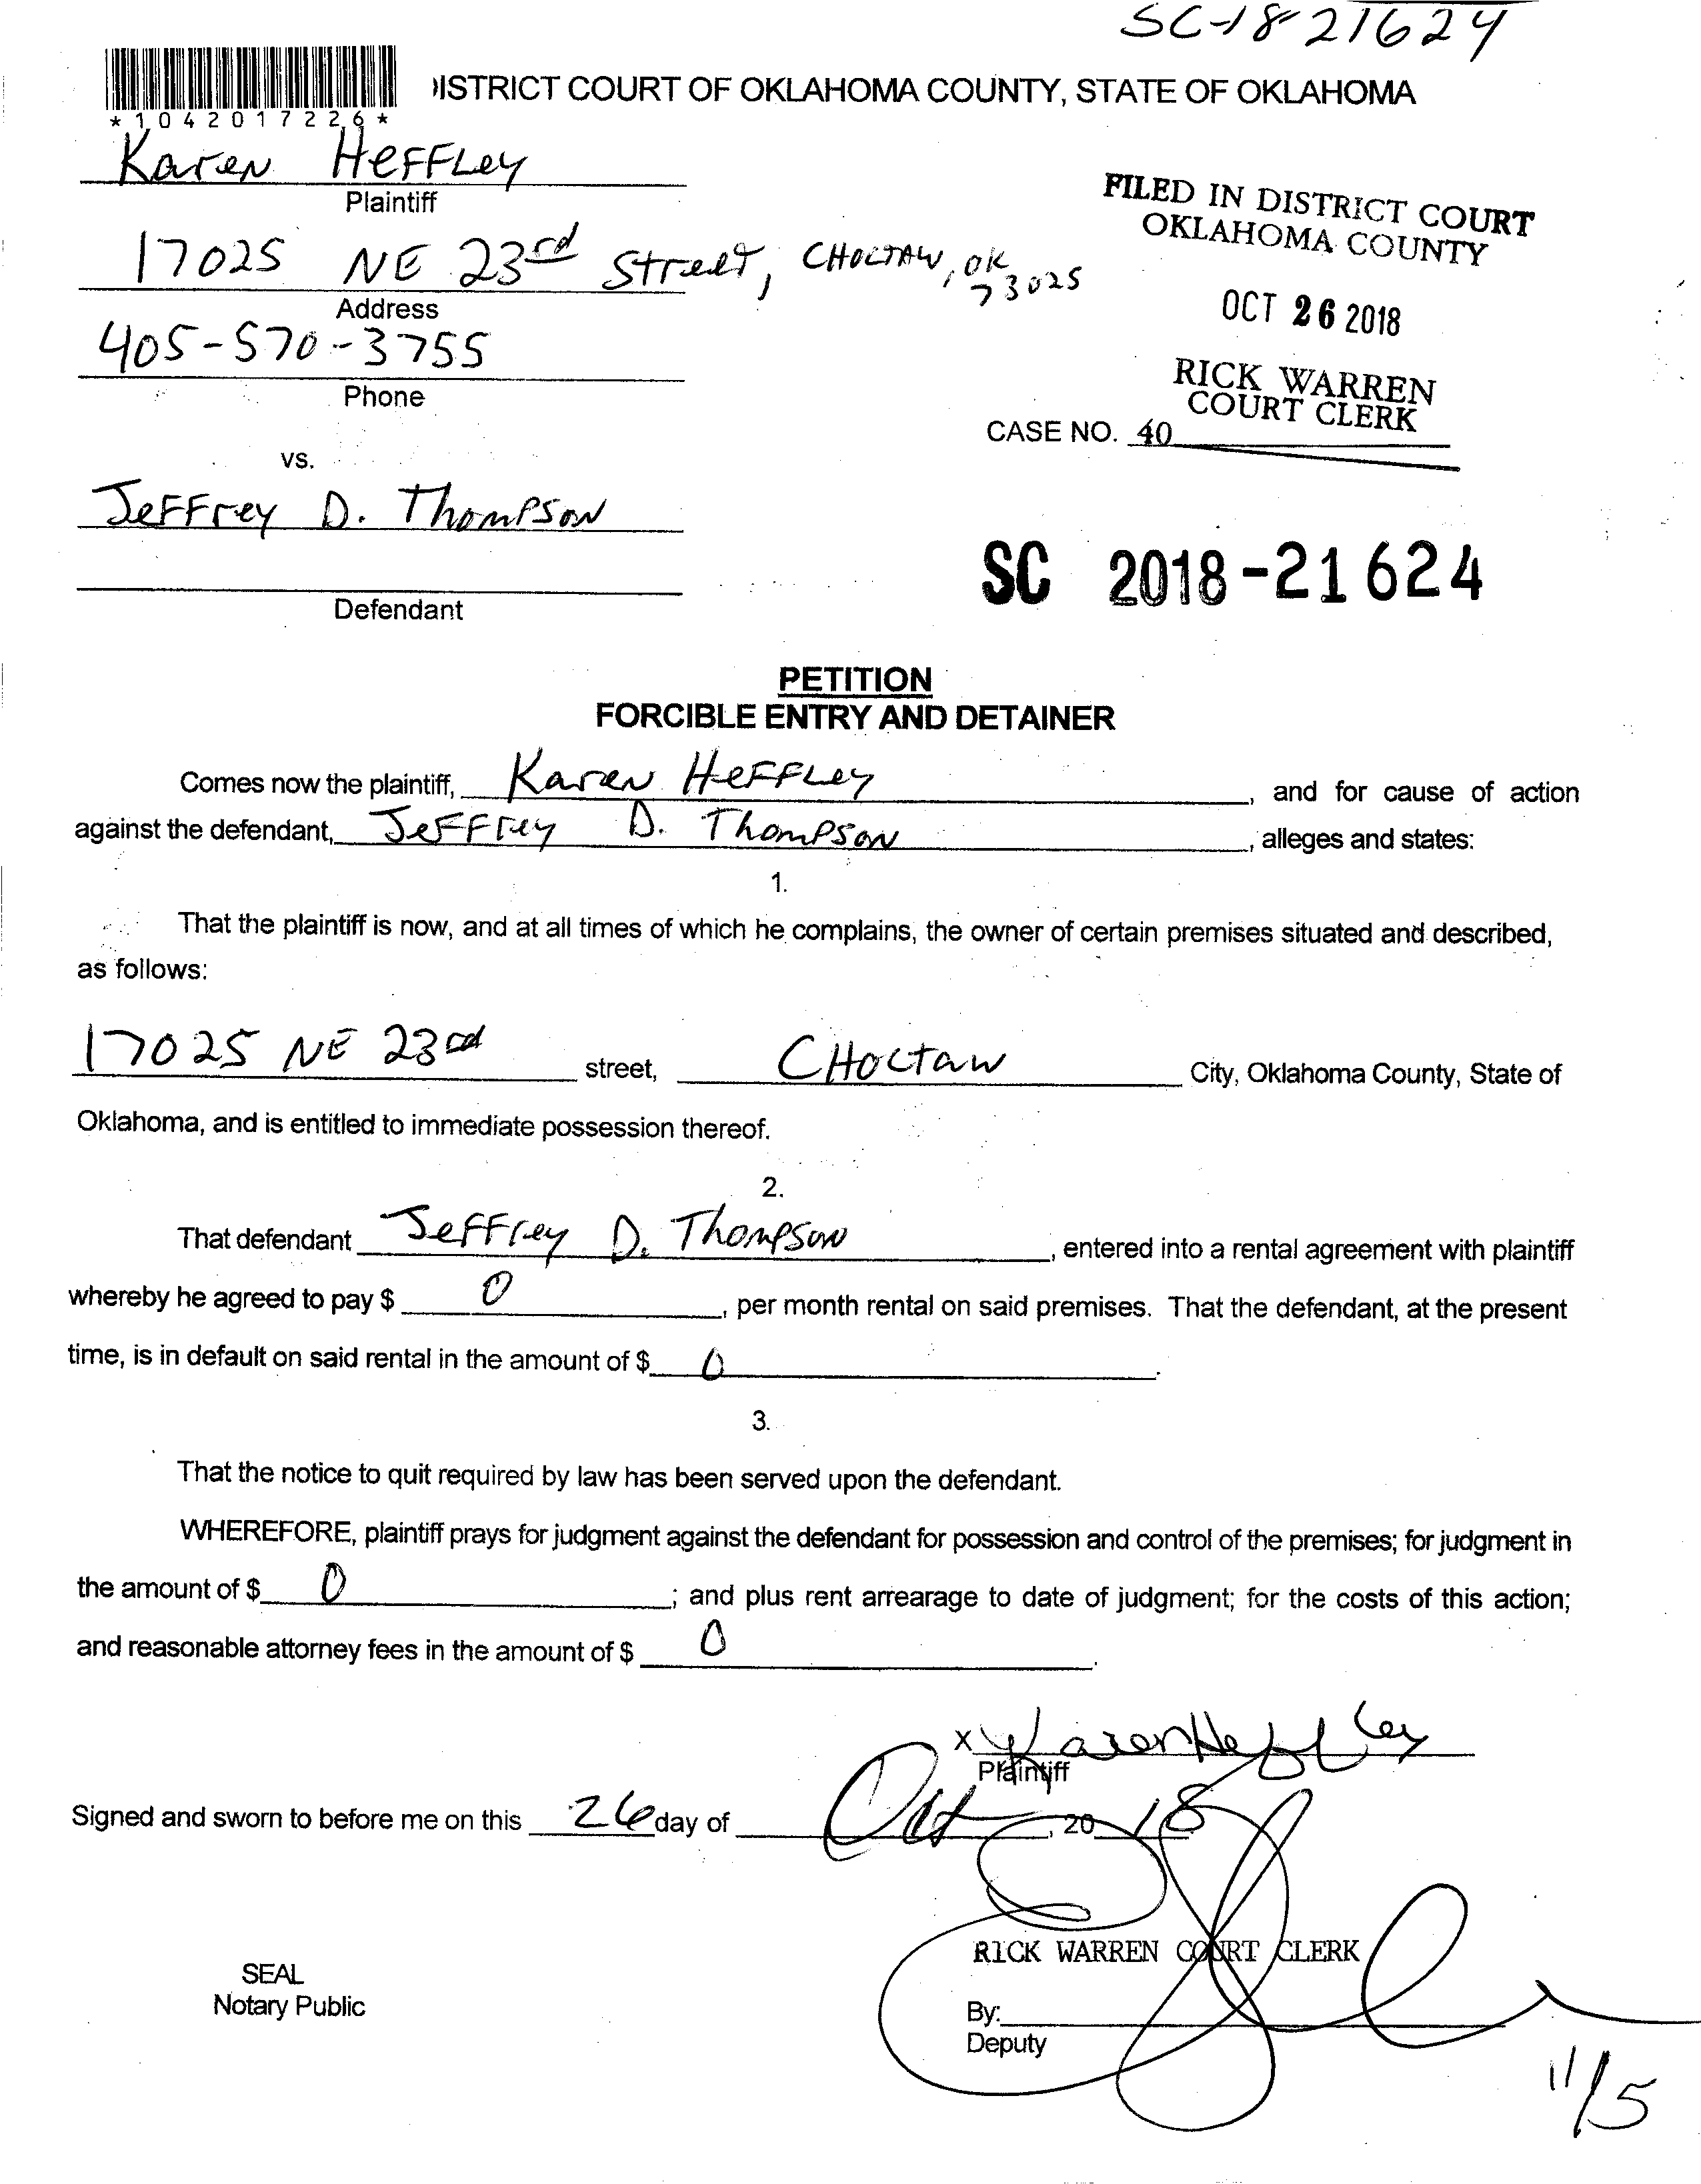 SC-18-21624
*1042017226*
ISTRICT COURT OF OKLAHOMA COUNTY, STATE OF OKLAHOMA
Karen Heffley
Plaintiff
FILED IN DISTRICT COURT
OKLAHOMA COUNTY
17025 NE 23rd Street, Choctaw, OK 73025
Address
OCT 26 2018
405-570-3755
Phone
RICK WARREN
COURT CLERK
CASE NO. 40
vs.
Jeffrey D. Thompson
Defendant
SC 2018-21624
PETITION
FORCIBLE ENTRY AND DETAINER
Comes now the plaintiff, Karen Heffley, and for cause of action
against the defendant, Jeffrey D. Thompson, alleges and states:
1.
That the plaintiff is now, and at all times of which he complains, the owner of certain premises situated and described,
as follows:
17025 NE 23rd street, Choctaw City, Oklahoma County, State of
Oklahoma, and is entitled to immediate possession thereof.
2.
That defendant Jeffrey D. Thompson, entered into a rental agreement with plaintiff
whereby he agreed to pay $ 0, per month rental on said premises. That the defendant, at the present
time, is in default on said rental in the amount of $ 0.
3.
That the notice to quit required by law has been served upon the defendant.
WHEREFORE, plaintiff prays for judgment against the defendant for possession and control of the premises; for judgment in
the amount of $ 0; and plus rent arrearage to date of judgment; for the costs of this action;
and reasonable attorney fees in the amount of $ 0.
x Karen Heffley
Plaintiff
Signed and sworn to before me on this 26 day of Oct, 2018.
RICK WARREN COURT CLERK
SEAL
Notary Public
By:
Deputy
11/5